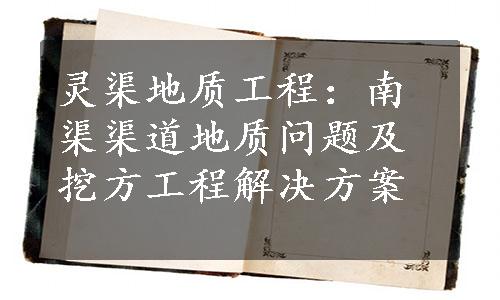 灵渠地质工程：南
渠渠道地质问题及
挖方工程解决方案